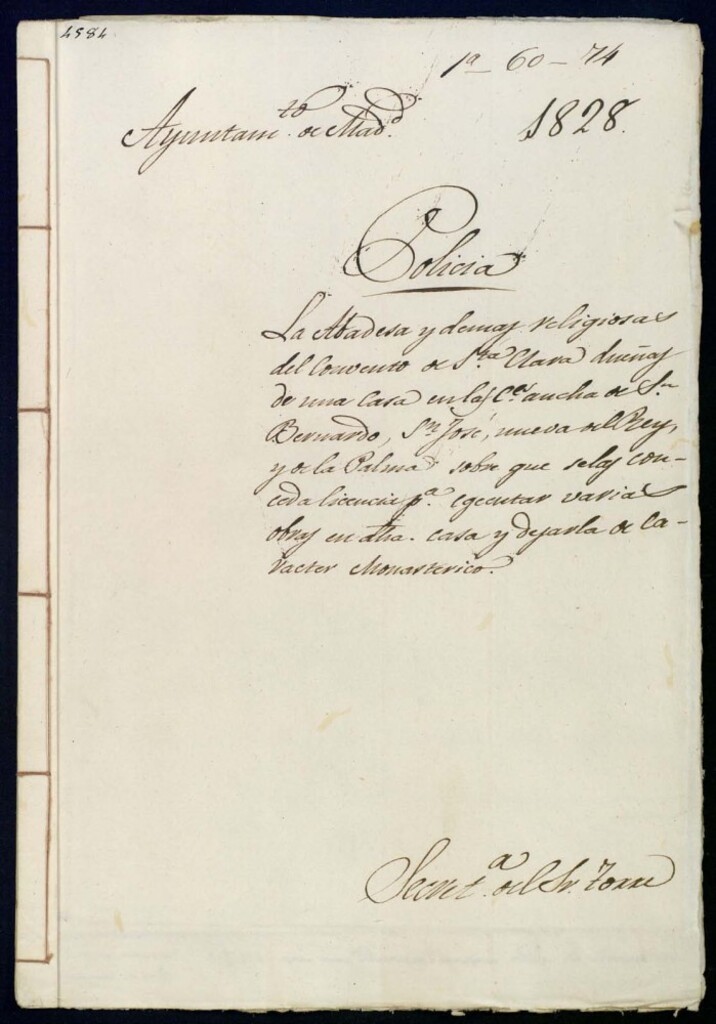 4584
1a - 60 - 74
Ayuntam.to de Mad.d
1828.
Policia
La Abadesa y demas religiosas
del Convento de S.ta Clara dueñas
de una casa en las C.s ancha de S.n
Bernardo, S.n José, nueva del Rey,
y de la Palma sobre que se las con-
ceda licencia p.a egecutar varias
obras en dha. casa y dejarla de Ca-
racter Monasterico.
Secret.a del Sr. Torre